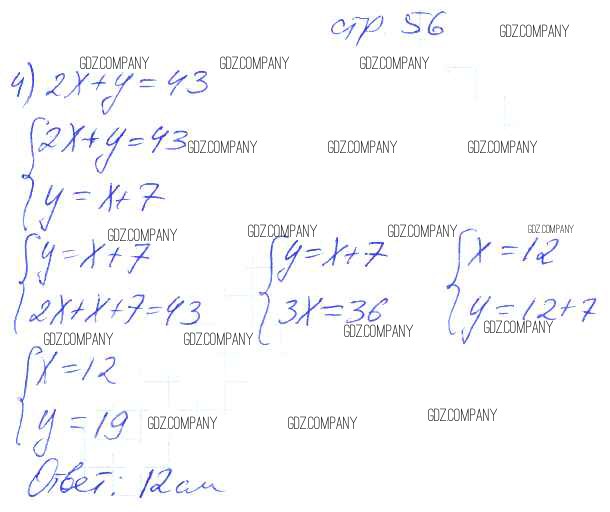 стр. 56
GDZ.COMPANY
GDZ.COMPANY GDZ.COMPANY GDZ.COMPANY
4) 2x+y=43
2x+y=43 GDZ.COMPANY GDZ.COMPANY GDZ.COMPANY
y=x+7
GDZ.COMPANY GDZ.COMPANY GDZ.COMPANY GDZ.COMPANY
y=x+7 y=x+7 x=12
2x+x+7=43 3x=36 y=12+7
GDZ.COMPANY GDZ.COMPANY GDZ.COMPANY GDZ.COMPANY
x=12
y=19 GDZ.COMPANY GDZ.COMPANY GDZ.COMPANY
Ответ: 12см